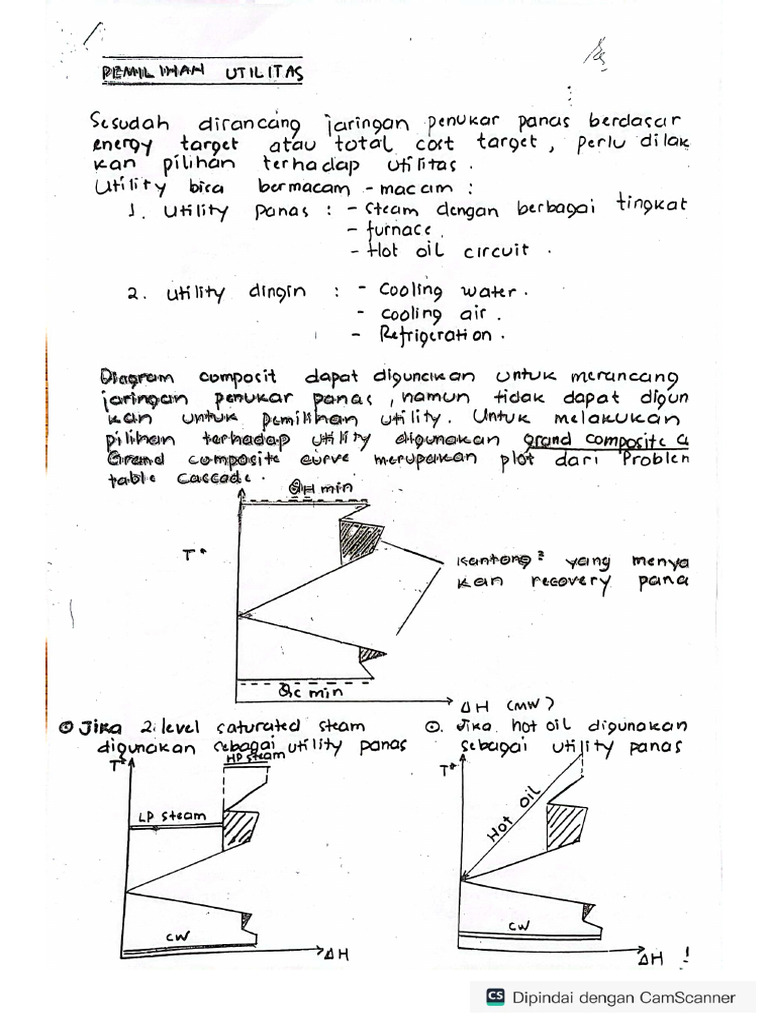 PEMILIHAN UTILITAS
Sesudah dirancang jaringan penukar panas berdasar
energy target atau total cost target, perlu dilak
kan pilihan terhadap utilitas.
Utility bisa bermacam-macam :
1. Utility panas : - Steam dengan berbagai tingkat
- furnace.
- Hot oil circuit.
2. Utility dingin : - Cooling water.
- cooling air.
- Refrigeration.
Diagram composit dapat digunakan untuk merancang
jaringan penukar panas, namun tidak dapat digun
kan untuk pemilihan utility. Untuk melakukan
pilihan terhadap utility digunakan grand composite c
Grand composite curve merupakan plot dari Problem
table cascade.
QH min
T*
Kantong² yang menya
kan recovery pana
Qc min
ΔH (MW)
Jika 2 level saturated steam
digunakan sebagai utility panas
Jika hot oil digunakan
sebagai utility panas
T*
HP steam
LP steam
CW
ΔH
T*
Hot oil
CW
ΔH
CS Dipindai dengan CamScanner